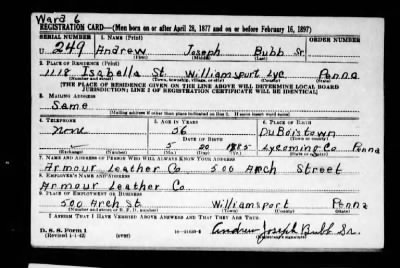 Ward 6
REGISTRATION CARD—(Men born on or after April 28, 1877 and on or before February 16, 1897)
SERIAL NUMBER 1. NAME (Print) ORDER NUMBER
U 249 Andrew Joseph Bubb Sr.
(First) (Middle) (Last)
2. PLACE OF RESIDENCE (Print)
1118 Isabella St. Williamsport Lyc Penna
(Number and street) (Town, township, village, or city) (County) (State)
[THE PLACE OF RESIDENCE GIVEN ON THE LINE ABOVE WILL DETERMINE LOCAL BOARD
JURISDICTION; LINE 2 OF REGISTRATION CERTIFICATE WILL BE IDENTICAL]
3. MAILING ADDRESS
Same
[Mailing address if other than place indicated on line 2. If same insert word same]
4. TELEPHONE 5. AGE IN YEARS 6. PLACE OF BIRTH
None 56 DuBoistown
DATE OF BIRTH (Town or county)
5 20 1885 Lycoming Co Penna
(Exchange) (Number) (Mo.) (Day) (Yr.) (State or country)
7. NAME AND ADDRESS OF PERSON WHO WILL ALWAYS KNOW YOUR ADDRESS
Armour Leather Co. 500 Arch Street
8. EMPLOYER'S NAME AND ADDRESS
Armour Leather Co
9. PLACE OF EMPLOYMENT OR BUSINESS
500 Arch St Williamsport Penna
(Number and street or R. F. D. number) (Town) (County) (State)
I AFFIRM THAT I HAVE VERIFIED ABOVE ANSWERS AND THAT THEY ARE TRUE.
D. S. S. Form 1
(Revised 4-1-42) (over) Andrew Joseph Bubb Sr.
(Registrant's signature)